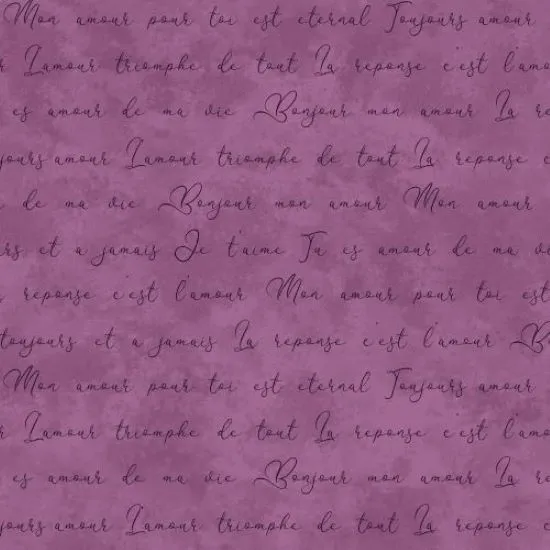 Mon amour pour toi est eternal Toujours amour
r Lamour triomphe de tout La reponse c'est l'amo
es amour de ma vie Bonjour mon amour La re
jours amour Lamour triomphe de tout La reponse c
de ma vie Bonjour mon amour Mon amour
rs et a jamais Je t'aime Tu es amour de ma vi
reponse c'est l'amour Mon amour pour toi est
toujours et a jamais La reponse c'est l'amour Bo
Mon amour pour toi est eternal Toujours amour
r Lamour triomphe de tout La reponse c'est l'amo
es amour de ma vie Bonjour mon amour La re
jours amour Lamour triomphe de tout La reponse c